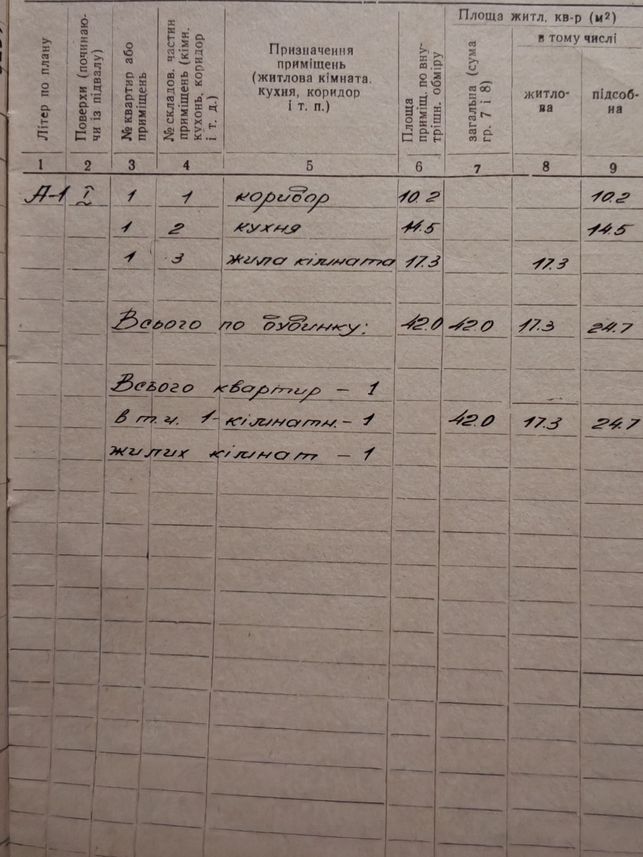 Літер по плану
Поверхи (починаю-
чи із підвалу)
№ квартир або
приміщень
№ складов. частин
приміщень (кімн.
кухонь, коридор
і т. д.)
Призначення
приміщень
(житлова кімната.
кухня, коридор
і т. п.)
Площа
приміщ. по вну-
трішн. обміру
Площа житл. кв-р (м²)
загальна (сума
гр. 7 і 8)
в тому числі
житло-
ва
підсоб-
на
1 2 3 4 5 6 7 8 9
А-1 І 1 1 коридор 10.2 10.2
1 2 кухня 14.5 14.5
1 3 жила кімната 17.3 17.3
Всього по будинку: 42.0 42.0 17.3 24.7
Всього квартир – 1
в т.ч. 1-кімнатн. – 1 42.0 17.3 24.7
жилих кімнат – 1